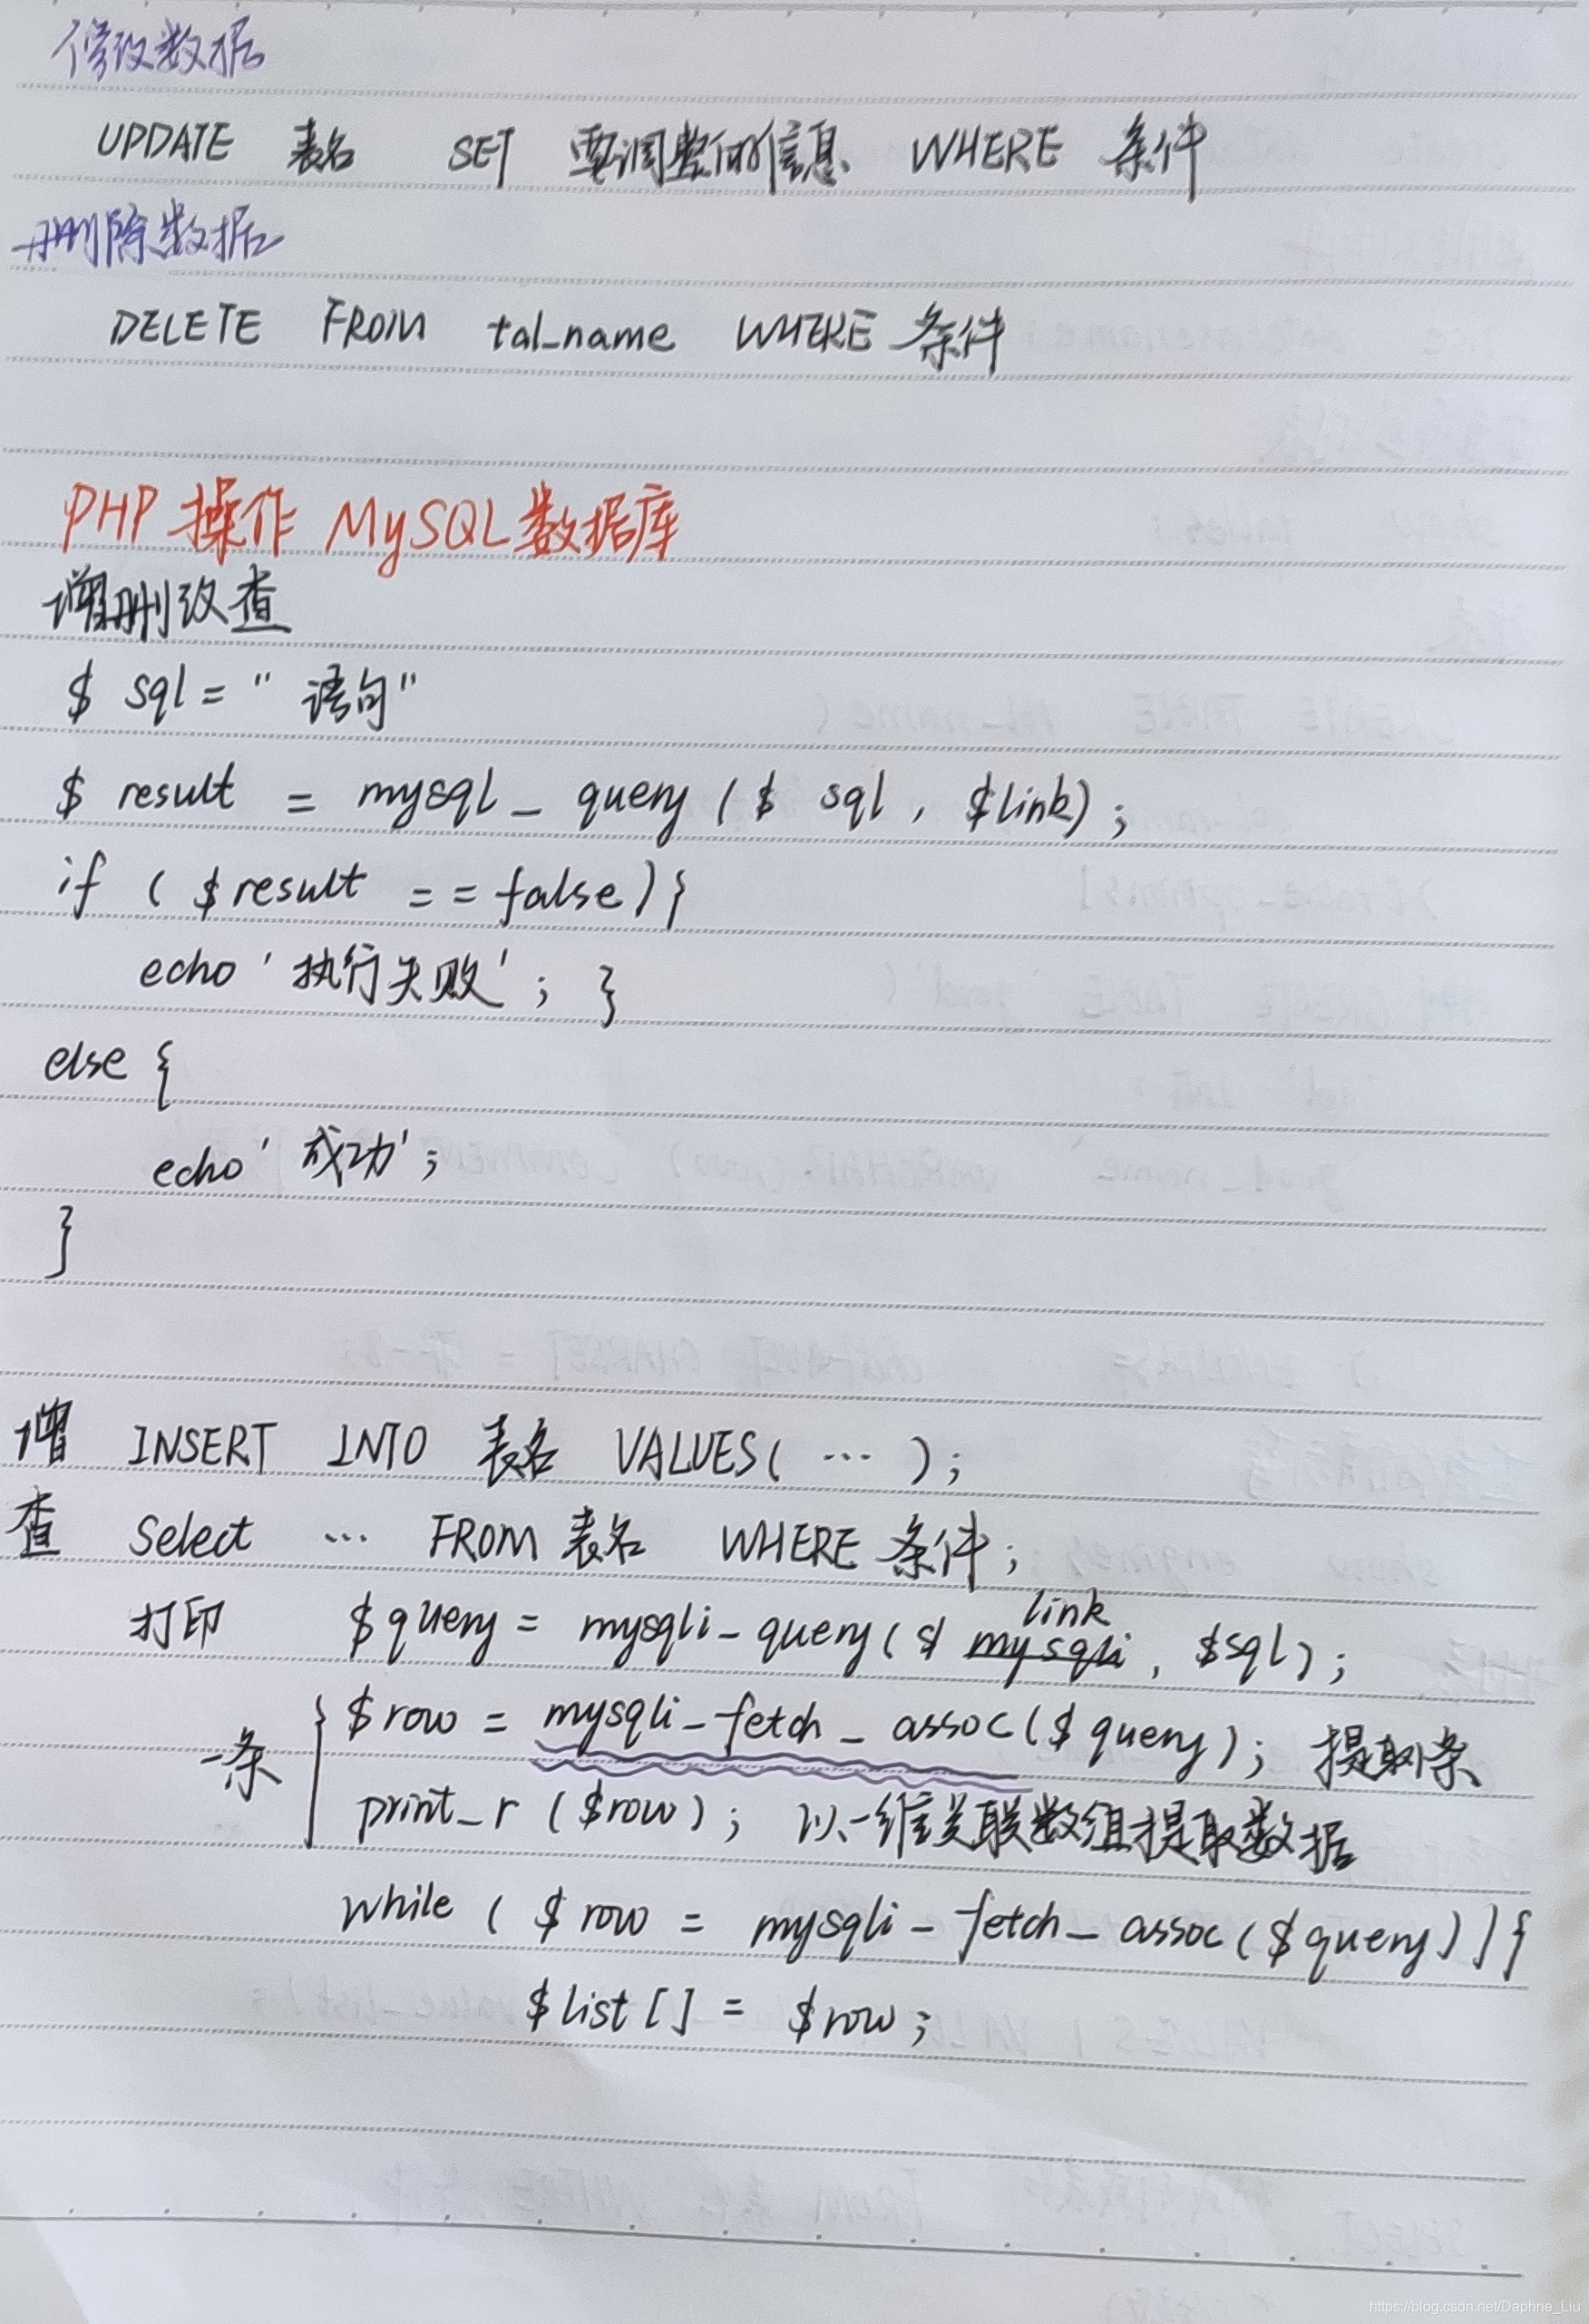 修改数据
UPDATE 表名 SET 要调整的信息、 WHERE 条件
删除数据
DELETE FROM tal_name WHERE 条件
PHP 操作 MySQL 数据库
增删改查
$ sql = " 语句"
$ result = mysql_query ($ sql , $link) ;
if ( $result == false) {
echo ' 执行失败' ; }
else {
echo ' 成功' ;
}
增 INSERT INTO 表名 VALUES( … ) ;
查 Select … FROM 表名 WHERE 条件 ;
link
打印 $query = mysqli_query ($ mysqli , $sql) ;
$row = mysqli_fetch_assoc ($ query) ; 提取一条
一条
print_r ($row) ; 以一维关联数组提取数据
while ( $ row = mysqli_fetch_assoc ($query) ) {
$list [] = $row ;
https://blog.csdn.net/Daphne_Liu